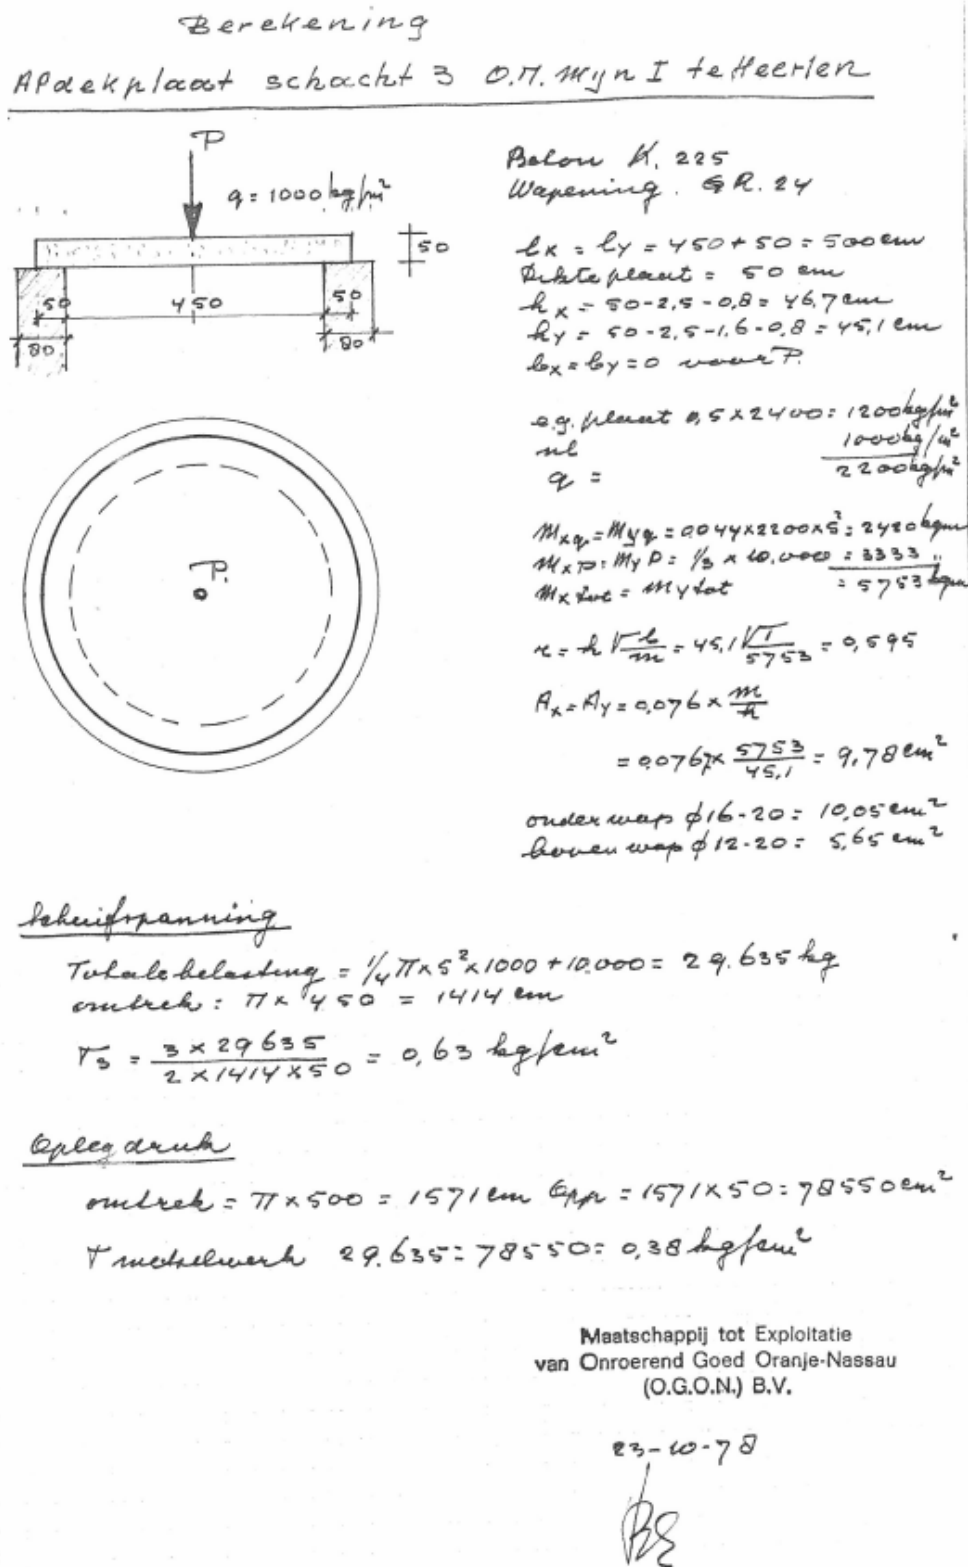 Berekening
Afdekplaat schacht 3 O.N. Mijn I te Heerlen
P
q = 1000 kg/m²
50
50
450
50
80
80
P.
Beton K. 225
Wapening. QR. 24
lx = ly = 450 + 50 = 500 cm
Dikte plaat = 50 cm
hx = 50-2,5-0,8 = 46,7 cm
hy = 50-2,5-1,6-0,8 = 45,1 cm
bx = by = 0 voor P.
e.g. plaat 0,5 x 2400 = 1200 kg/m²
nl 1000 kg/m²
q = 2200 kg/m²
Mxq = Myq = 0,044 x 2200 x 5² = 2420 kgm
MxP = MyP = 1/3 x 10.000 = 3333 "
Mx tot = My tot = 5753 kgm
r = h √b/m = 45,1 √1/5753 = 0,595
Ax = Ay = 0,076 x m/h
= 0,0767 x 5753/45,1 = 9,78 cm²
onder wap ϕ16-20 = 10,05 cm²
boven wap ϕ12-20 = 5,65 cm²
Schuifspanning
Totale belasting = 1/4 π x 5² x 1000 + 10.000 = 29.635 kg
omtrek = π x 450 = 1414 cm
τs = 3 x 29635 / 2 x 1414 x 50 = 0,63 kg/cm²
Opleg druk
omtrek = π x 500 = 1571 cm Opp = 1571 x 50 = 78550 cm²
σ metselwerk 29.635 : 78550 = 0,38 kg/cm²
Maatschappij tot Exploitatie
van Onroerend Goed Oranje-Nassau
(O.G.O.N.) B.V.
23-10-78